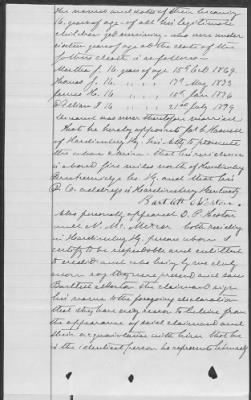 The names and dates of their becoming
16 years of age - of all his legitimate
children yet surviving - who were under
sixteen years of age at the death of the
father's death is as follows -
Martha J. 16 years of age 15th Oct 1869.
Thomas J. 16 " " 17th 1873
James H. 16 " " 15th Jan 1876
16 " " 21st July 1879
Claimant was never theretofore married
That he hereby appoints
of Hardinsburg Ky. his Atty to prosecute
the above claim - that his residence
is about five miles south of Hardinsburg
Breckenridge Co Ky. and that his
P.O. address is Hardinsburg Kentucky
Bartlett
Also personally appeared O. P.
and N. Mc. Mercer both residing
in Hardinsburg Ky. persons whom I
certify to be respectable and entitled
to credit and who being by me duly
sworn say they were present and saw
Bartlett the claimant sign
his name to the foregoing declaration
that they have every reason to believe from
the appearance of said claimant and
their acquaintance with him that he
is the identical person he represents himself